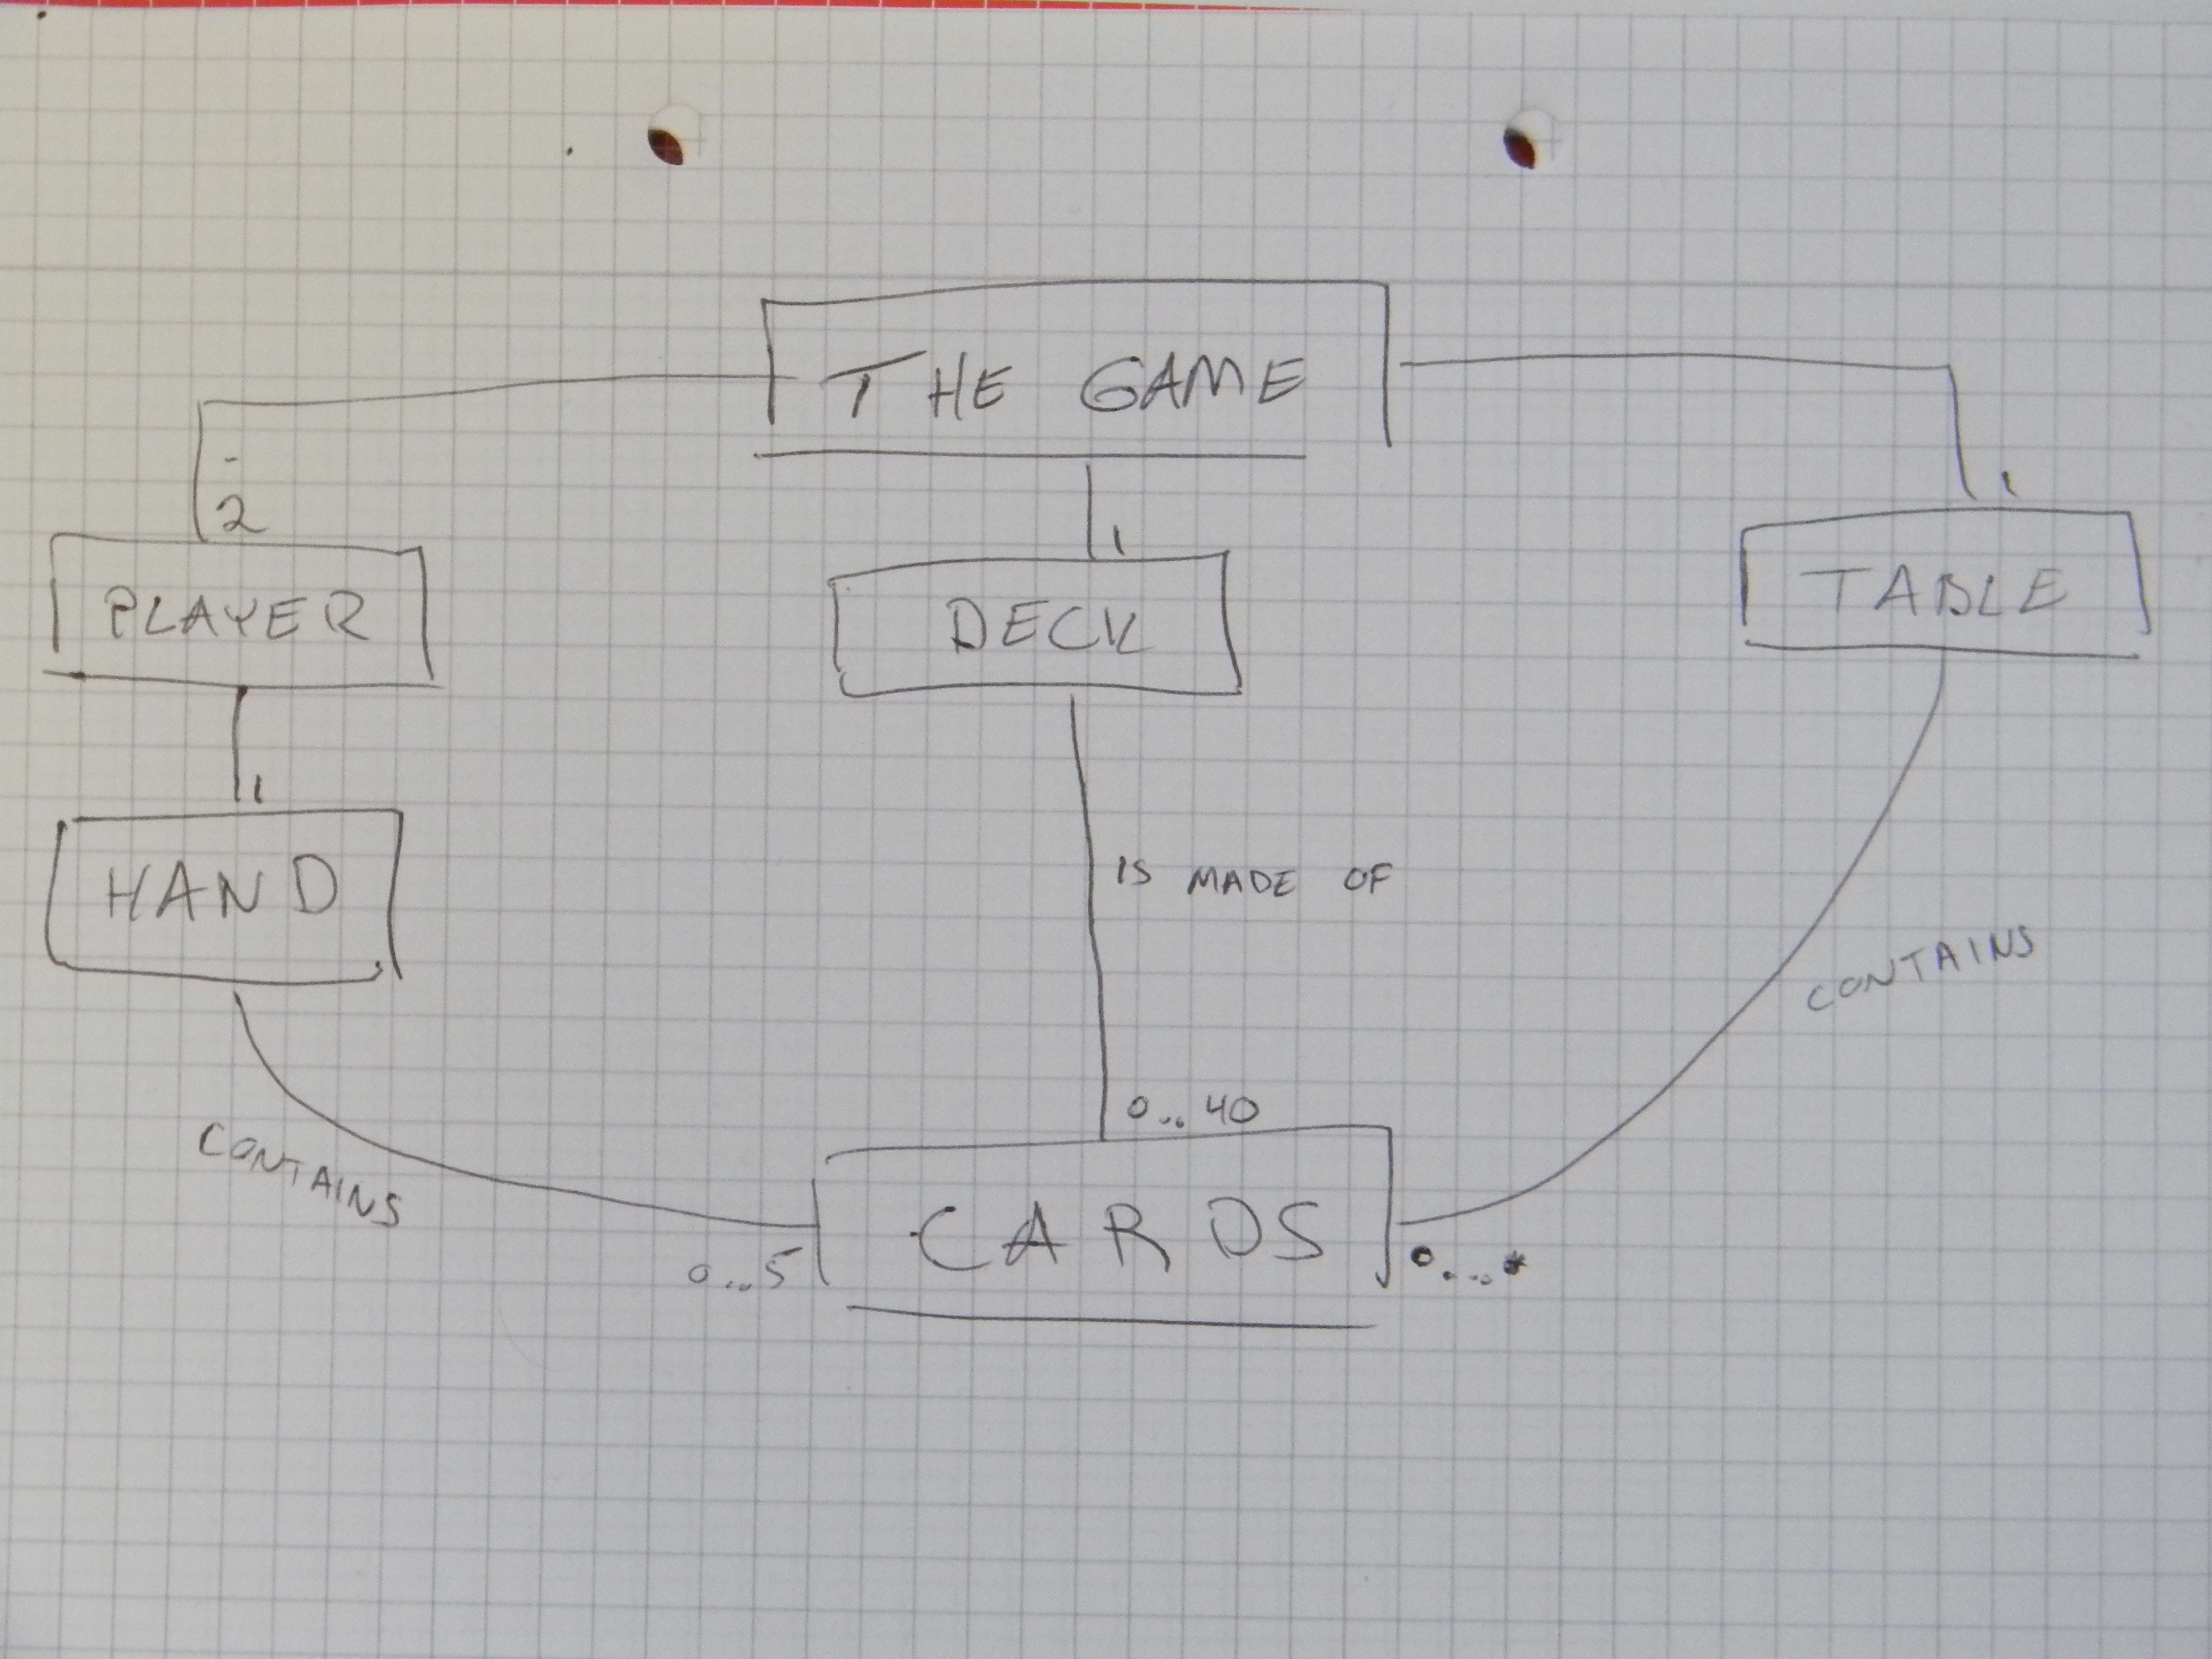 THE GAME
2
1
1
PLAYER
DECK
TABLE
1
HAND
IS MADE OF
CONTAINS
CONTAINS
0...40
CARDS
0...5
0...*